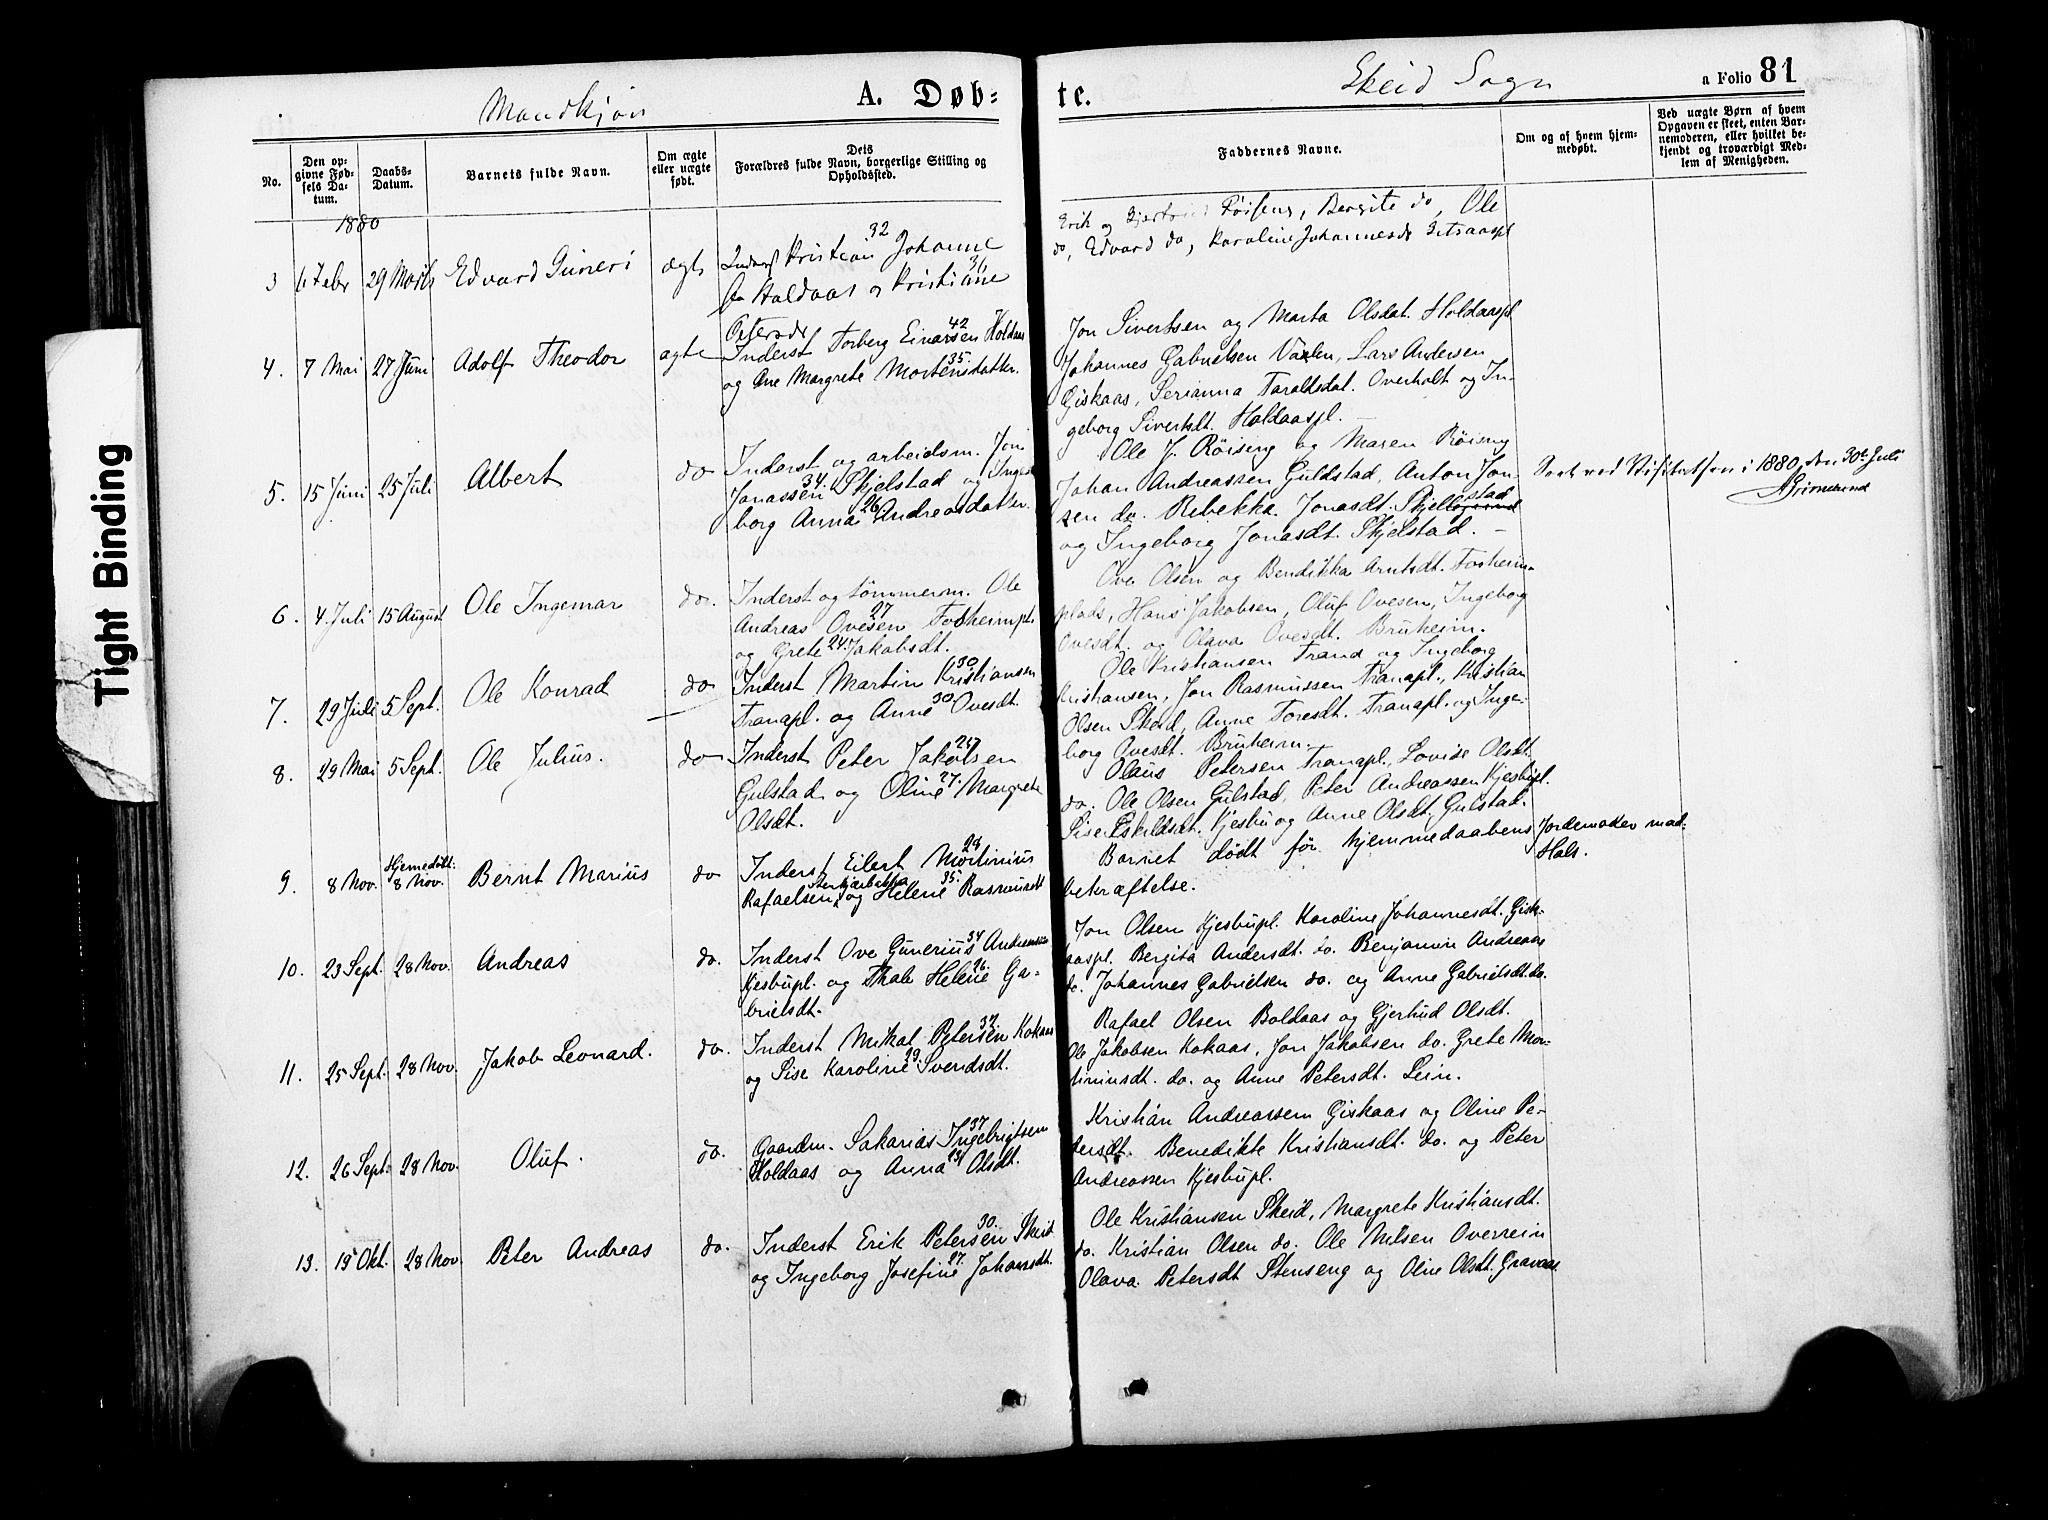 Mandkjøn
A. Døb=
te.
Skeid Sogn
a Folio 81
No.
Den op=
givne Fød=
sels Da=
tum.
Daabs=
Datum.
Barnets fulde Navn.
Om ægte
eller uægte
født.
Dets
Forældres fulde Navn, borgerlige Stilling og
Opholdssted.
Faddernes Navne.
Om og af hvem hjem=
medøbt.
Ved uægte Børn af hvem
Opgaven er skeet, enten Bar=
nemoderen, eller hvilket be=
kjendt og troværdigt Med=
lem af Menigheden.
1880
3 6 Febr 29 Marts Edvard Guneri ægte
Kristian 32 Johanne
Holdaas og Kristiane 31
Erik og Røiseng, Bergite do, Ole
do, Edvard do, Karoline Johannesdt
4. 7 Mai 27 Juni Adolf Theodor ægte
Inderst Torberg Einarsen 42 Holdaas
og Ane Margrete Mortensdatter. 35.
Jon Sivertsen og Marta Olsdat. Holdaaspl
Johannes Gabrielsen, Lars Andersen
Giskaas, Serianna Taraldsdat. Overholt og In-
geborg Sivertsdt. Holdaaspl. —
5. 15 Juni 25 Juli Albert do
Inderst og arbeidsm. Jon
Jonassen 34. Skjelstad og Inge-
borg Anna 26 Andreasdatter.
Ole J. Røiseng og Maren Røiseng
Johan Andreassen Guldstad, Anton Jon-
sen do. Rebekka Jonasdt. Skjelstad
og Ingeborg Jonasdt. Skjelstad. —
Seet ved Visitatsen i 1880, den 30te Juli
Grimelund
6. 4 Juli 15 August Ole Ingemar do.
Inderst og tømmerm. Ole
Andreas Ovesen 27 Fosheimpl.
og Grete 24. Jakobsdt.
Ove Olsen og Bendikka Arntsdt. Fosheim-
plads, Hans Jakobsen, Oluf Ovesen, Ingeborg
Ovesdt. og Olava Ovesdt. Bruheim.
7. 29 Juli 5 Sept. Ole Konrad do
Inderst Martin Kristiansen 30
Tranapl. og Anne 30 Ovesdt.
Ole Kristiansen Trana og Ingeborg
Kristiansen, Jon Rasmussen Tranapl., Kristian
Olsen Skeid, Anne Toresdt. Tranapl. og Inge-
borg Ovesdt. Bruheim.
8. 29 Mai 5 Sept. Ole Julius. do
Inderst Peter Jakobsen
Gulstad og Oline 27. Margrete
Olsdt.
Olaus Petersen Tranapl., Lovise Olsdt.
do. Ole Olsen Gulstad, Peter Andreassen Kjesbupl.
Sise Eskildsdt. Kjesbu og Anne Olsdt. Gulstad.
9. 8 Nov. Hjemedøbt: 8 Nov. Bernt Marius do
Inderst Eilert Mortinius 28
Rafaelsen og Helene 35. Rasmusdt
Barnet dødt før hjemmedaabens
bekræftelse.
Jordemoder mad.
Hals.
10. 23 Sept. 28 Nov. Andreas do.
Inderst Ove Gunerius 34 Andreassen
Kjesbupl. og Thale Helene 26. Ga-
brielsdt.
Jon Olsen Kjesbupl. Karoline Johannesdt. Gisk-
aaspl. Bergita Andersdt. do. Benjamin Andreas
do. Johannes Gabrielsen do. og Anne Gabrielsdt. do.
11. 25 Sept. 28 Nov. Jakob Leonard. do.
Inderst Mikal Petersen 37. Kokaas
og Sise Karoline 29. Svendsdt.
Rafael Olsen Boldaas og Gjertrud Olsdt.
Ole Jakobsen Kokaas, Jon Jakobsen do. Grete Mor-
tiniusdt. do. og Anne Petersdt. Lein.
12. 26 Sept. 28 Nov. Oluf. do.
Gaardm. Sakarias Ingebrigtsen 37
Holdaas og Anna 31 Olsdt.
Kristian Andreassen Giskaas og Oline Pe-
dersdt. Benedikte Kristiansdt. do. og Peter
Andreassen Kjesbupl.
13. 15 Okt. 28 Nov. Peter Andreas do.
Inderst Erik Petersen 30. Skeid
og Ingeborg Josefine 27. Johansdt.
Ole Kristiansen Skeid, Margrete Kristiansdt.
do. Kristian Olsen do. Ole Nilsen Overrein
Olava Petersdt Stenseng og Oline Olsdt. Gravaas
Tight Binding